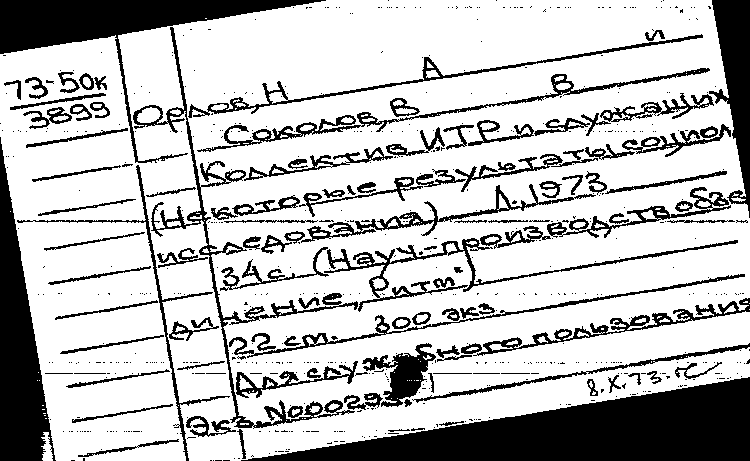 73-50к
3899
Орлов, Н А и
Соколов, В В
Коллектив ИТР и служащих
(Некоторые результаты социол
исследования) Л., 1973
34 с. (Науч.-производств объе
динение „Ритм").
22 см. 300 экз.
Для служебного пользования
Экз. №00293.
8.X.73.